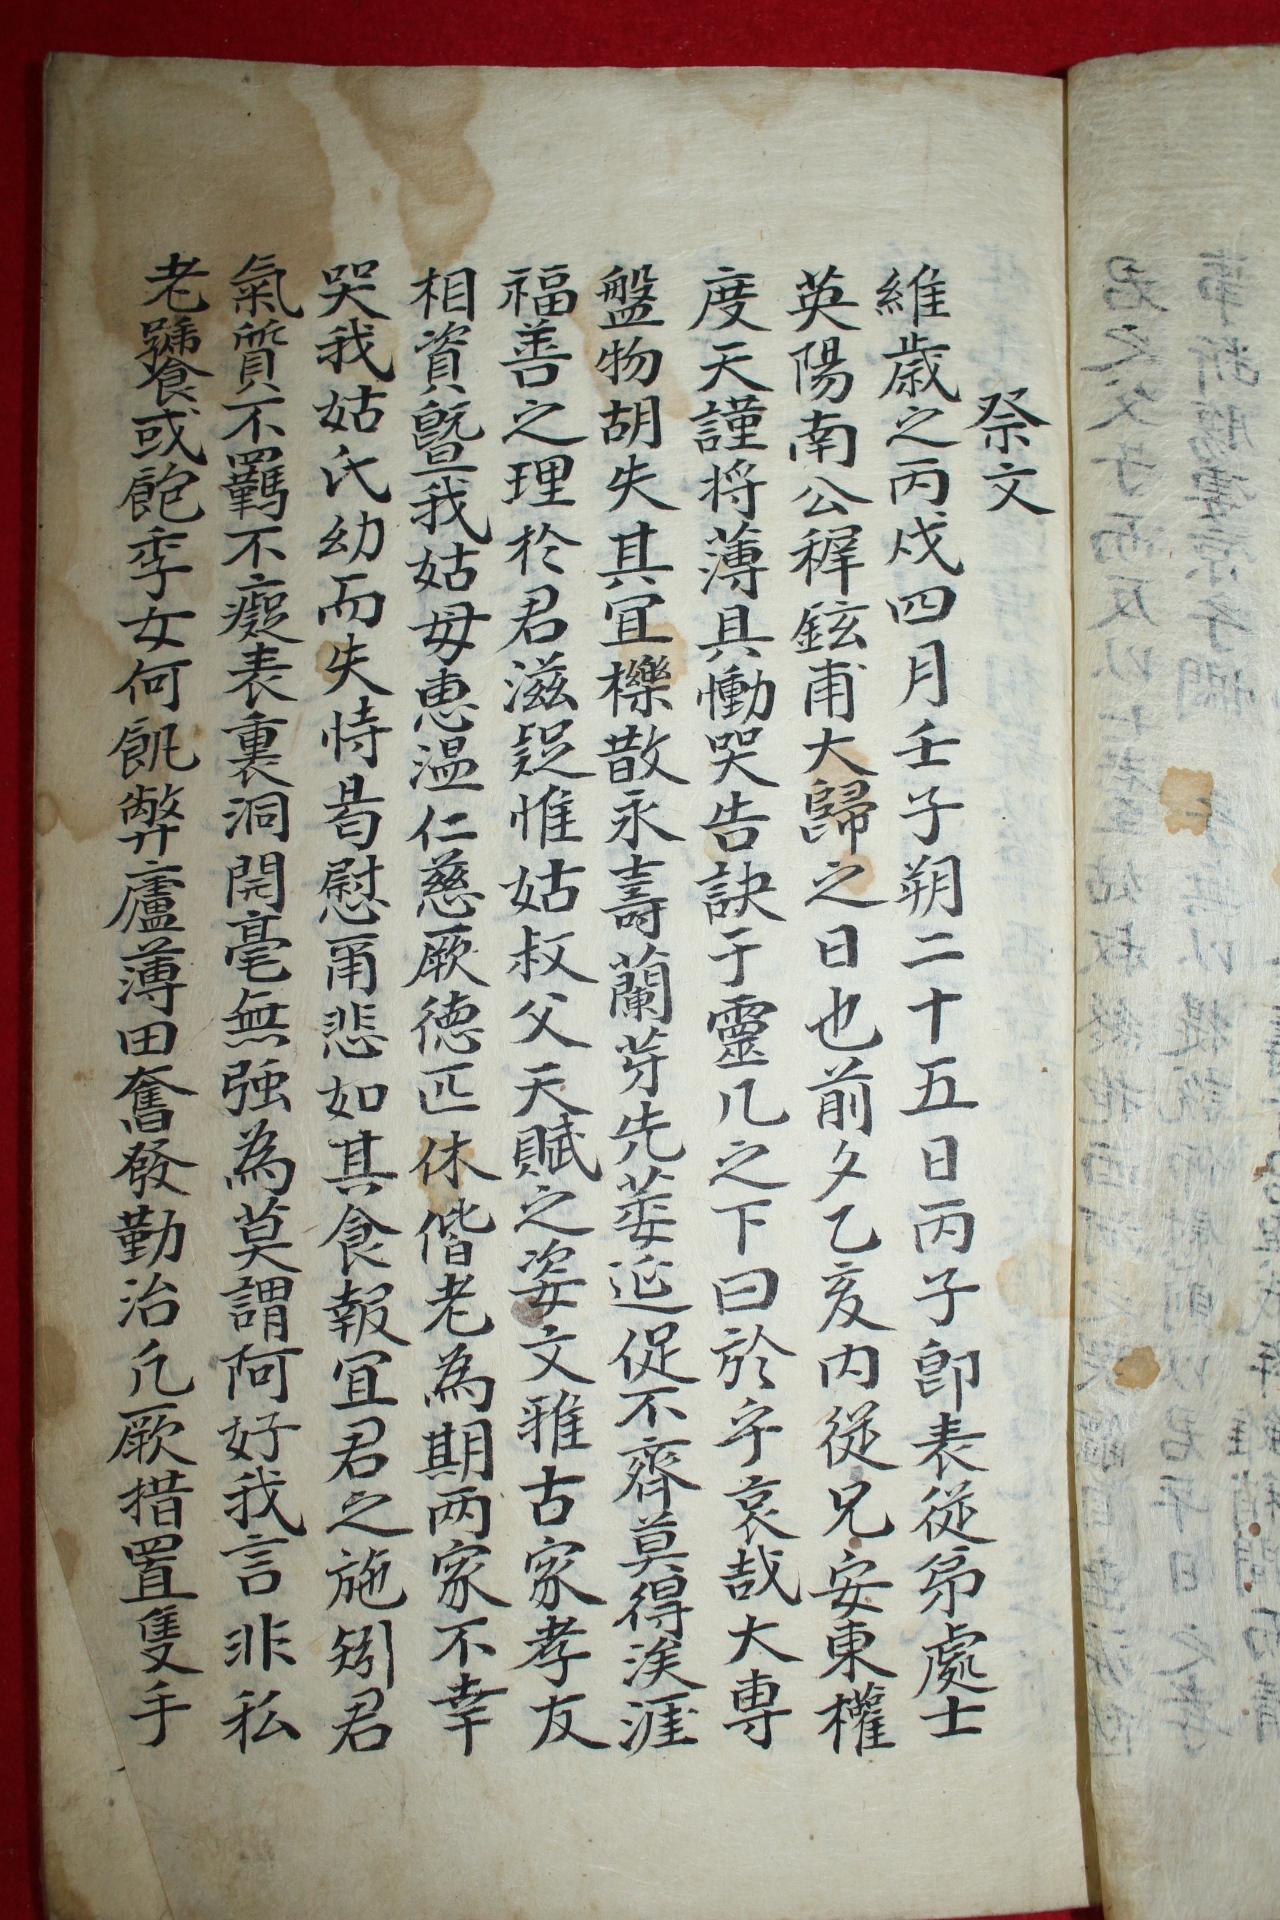 祭文
維歳之丙戌四月壬子朔二十五日丙子卽表從弟處士
英陽南公稺鉉甫大歸之日也前夕乙亥内從兄安東權
度天謹將薄具慟哭告訣于靈几之下曰於乎哀哉大専
盤物胡失其宜櫟散永壽蘭芽先萎延促不齊莫得涘涯
福善之理於君滋疑惟姑叔父天賦之姿文雅古家孝友
相資曁我姑母恵温仁慈厥德匹休偕老為期两家不幸
哭我姑氏幼而失恃曷慰甭悲如其食報宜君之施矧君
氣質不羈不癡表裏洞開毫無强為莫謂阿好我言非私
老號飧或飽季女何飢弊廬薄田奮發勤治凢厥措置隻手